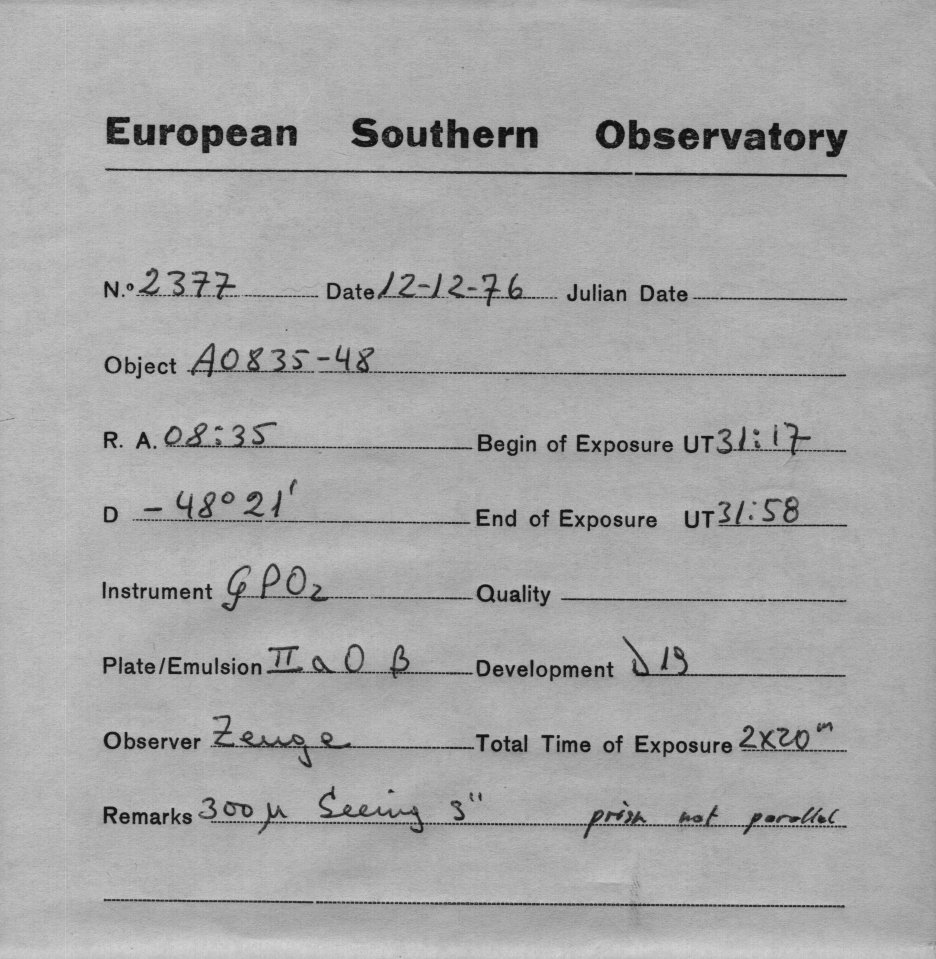 European Southern Observatory
N.º 2377 Date 12-12-76 Julian Date
Object A0835-48
R. A. 08:35 Begin of Exposure UT 31:17
D - 48° 21' End of Exposure UT 31:58
Instrument GPO2 Quality
Plate/Emulsion II a O β Development D19
Observer Zeuge Total Time of Exposure 2x20m
Remarks 300 μ Seeing 3" prism not parallel